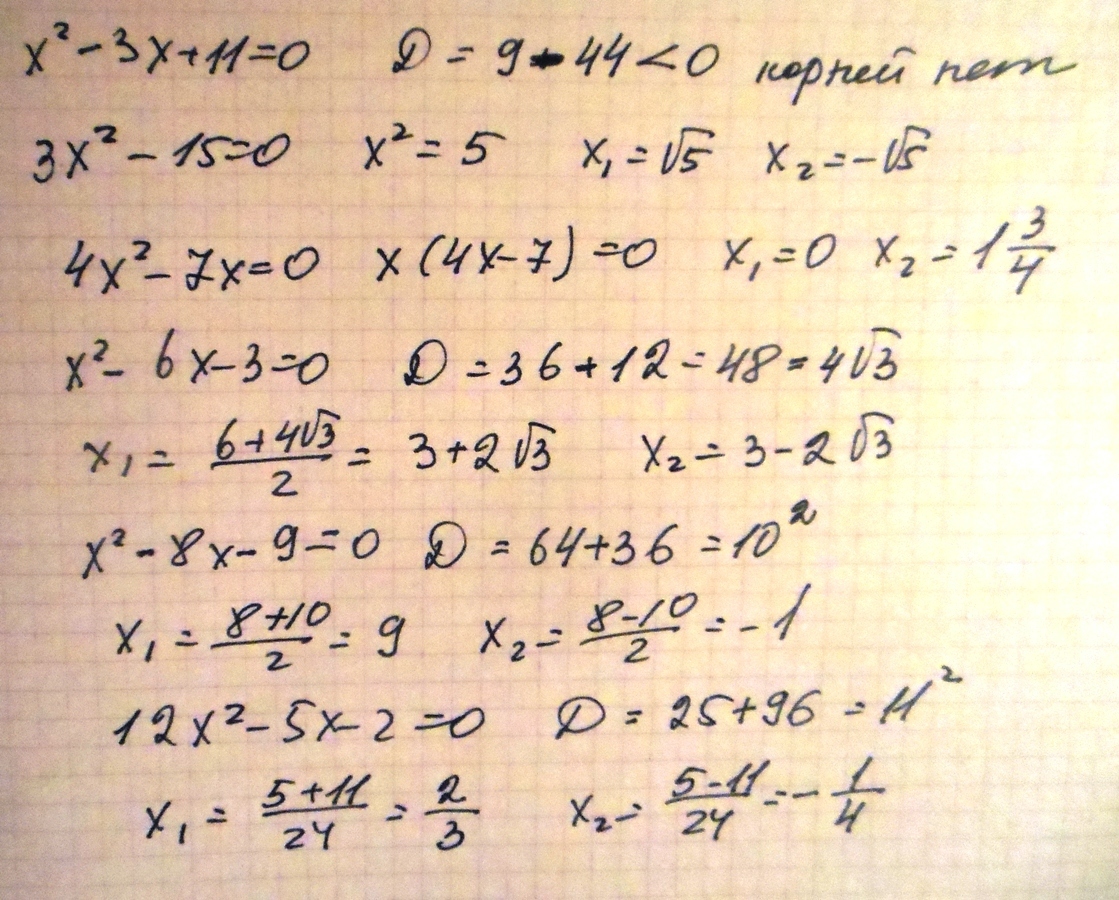 x² - 3x + 11 = 0 D = 9 - 44 < 0 корней нет
3x² - 15 = 0 x² = 5 x₁ = √5 x₂ = -√5
4x² - 7x = 0 x(4x - 7) = 0 x₁ = 0 x₂ = 1 3/4
x² - 6x - 3 = 0 D = 36 + 12 = 48 = 4√3
x₁ = (6 + 4√3)/2 = 3 + 2√3 x₂ = 3 - 2√3
x² - 8x - 9 = 0 D = 64 + 36 = 10²
x₁ = (8 + 10)/2 = 9 x₂ = (8 - 10)/2 = -1
12x² - 5x - 2 = 0 D = 25 + 96 = 11²
x₁ = (5 + 11)/24 = 2/3 x₂ = (5 - 11)/24 = -1/4